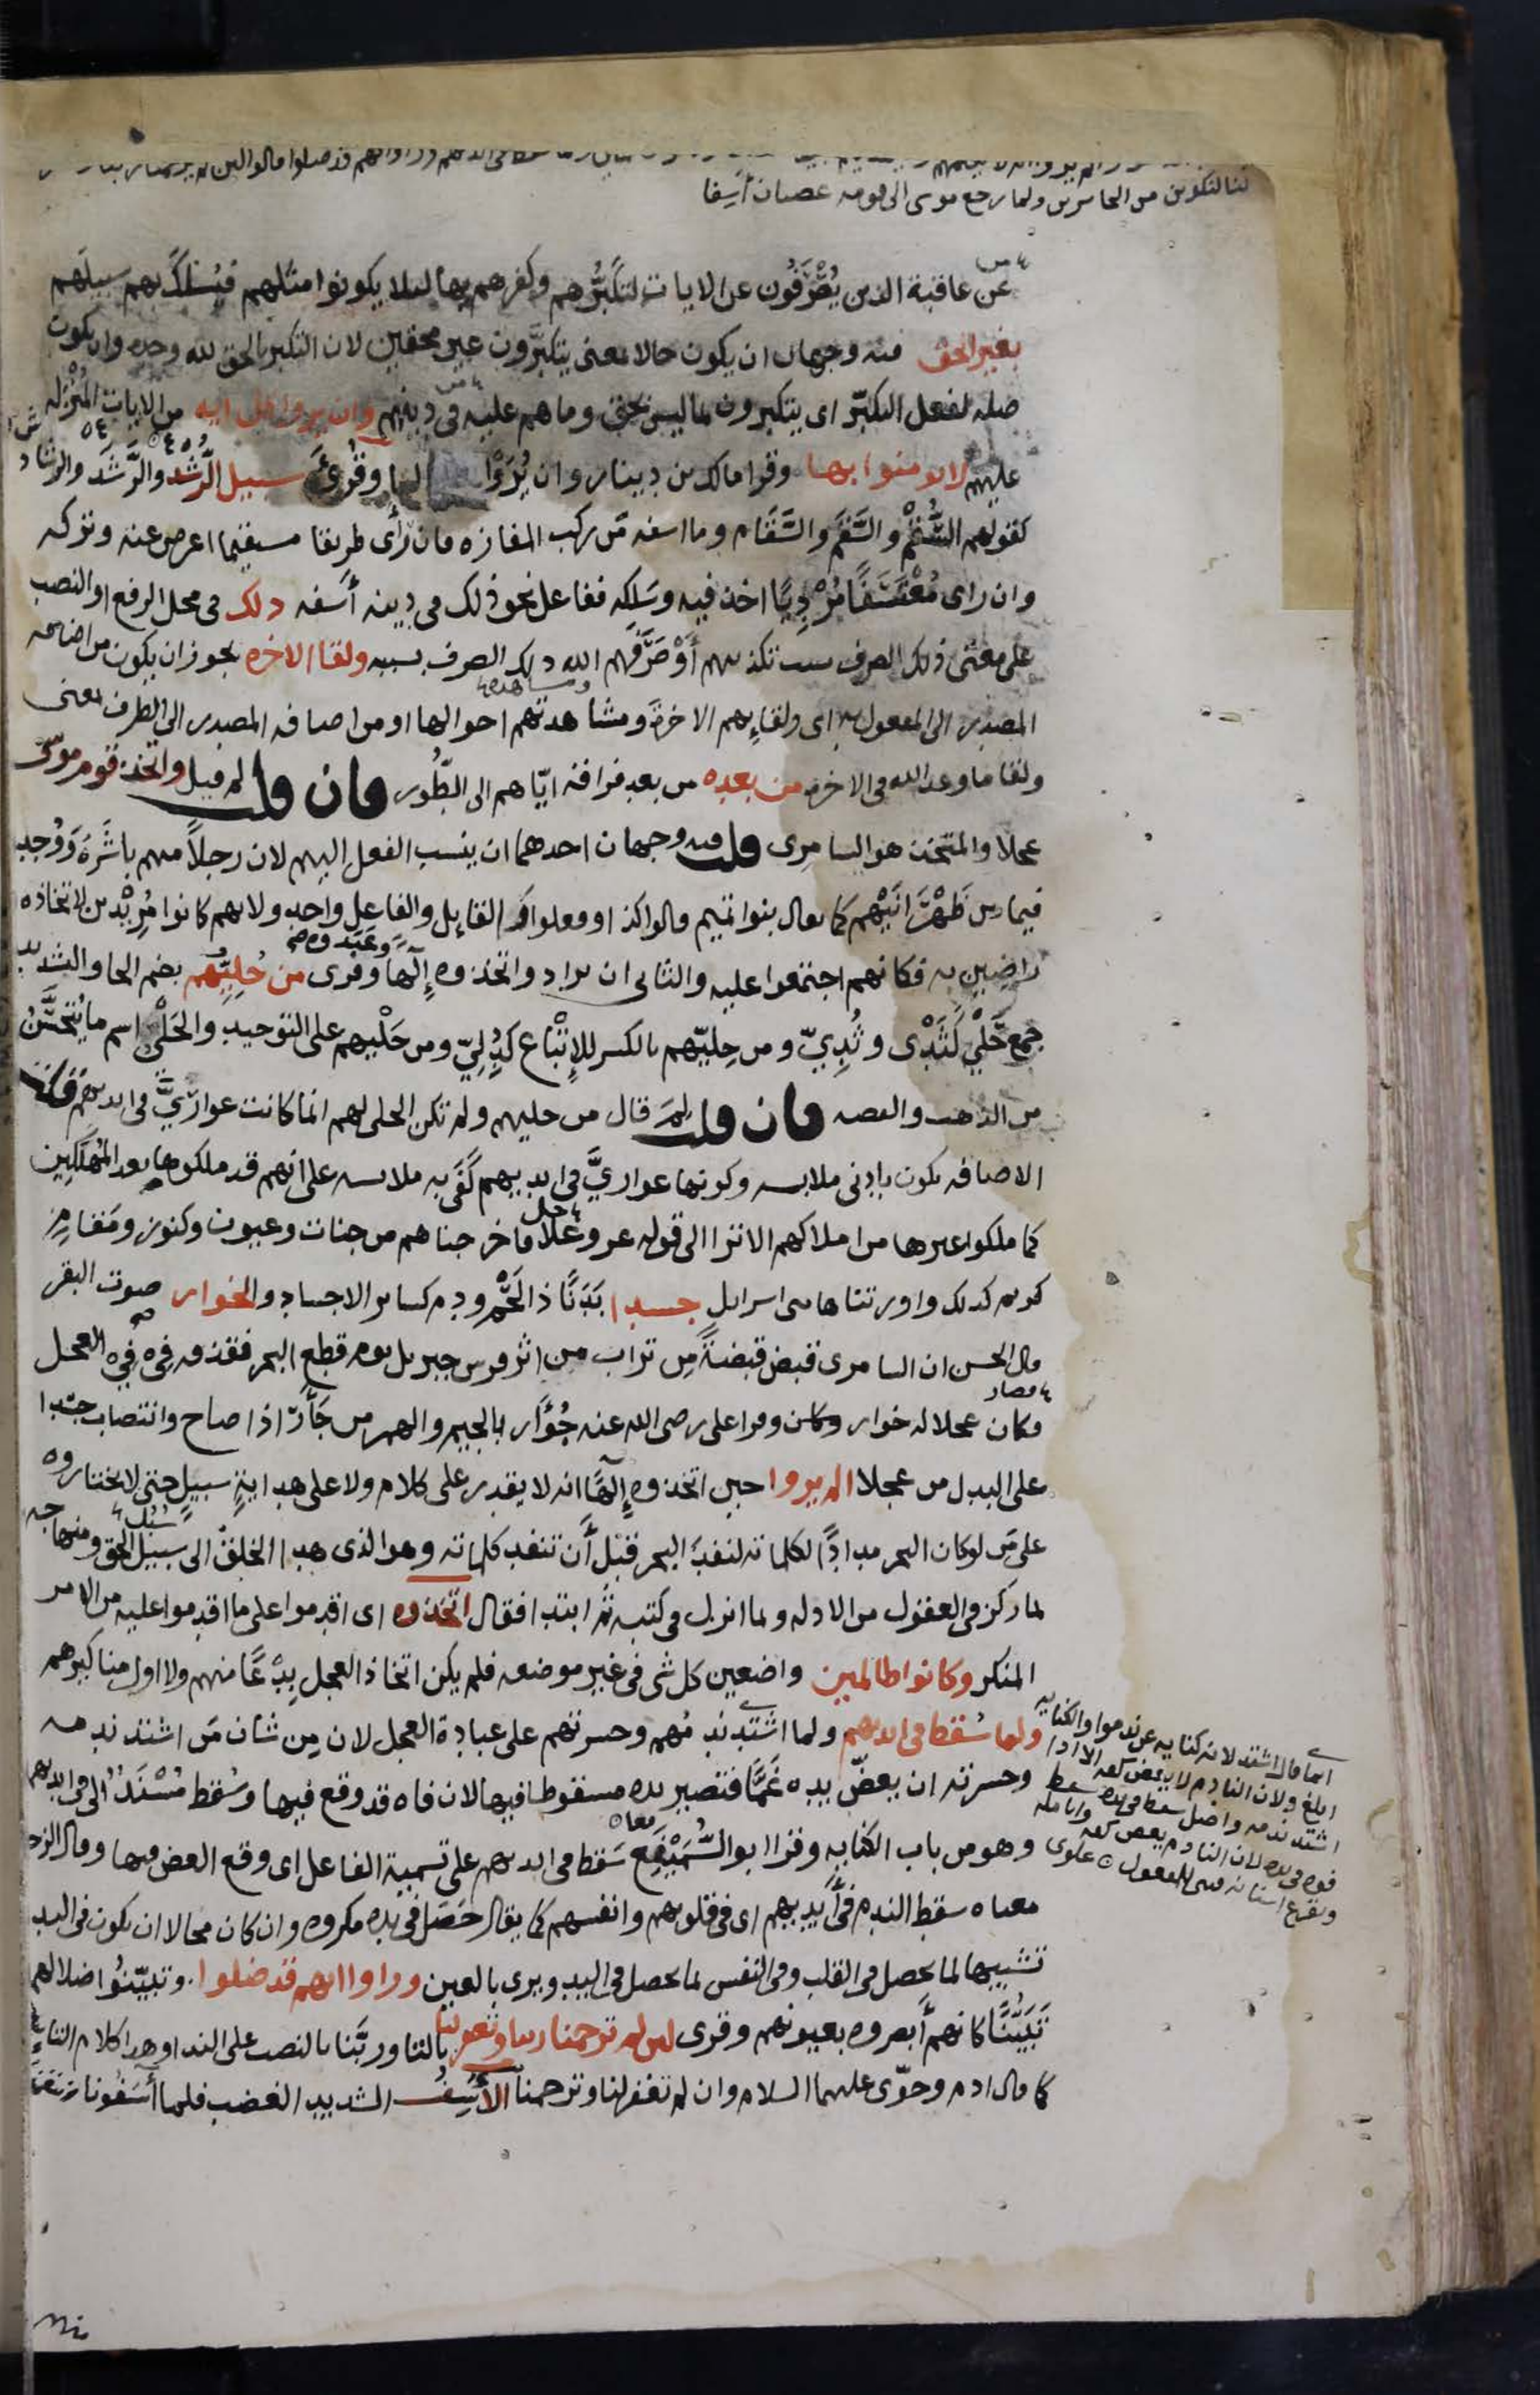 لنا لنكونن من الخاسرين ولما رجع موسى الى قومه غضبان أسِفا
عن عاقبة الذين يُصْرَفُون عن الايات لتكبُّرهم وكفرهم بها لىلا يكونوا امثلهم فيُسْلَكَ بهم سبيلَهم
بغير الحق فيه وجهان ان يكون حالا بمعنى يتكبَّرون غير محقين لان التكبر بالحق لله وحده وان يكون
صلة لفعل التكبّر اى يتكبرون بما ليس بحق وما هم عليه فى دينهم وان يروا كل اية من الايات المُنْزَلة
عليهم لا يومنوا بها وقرا مالك بن دينار وان يُرَوْا وقُرِئَ سبيل الرُّشْد والرَّشَد والرشاد
كقولهم السُّقْم والسَّقَم والسَّقَام وما اسفه مَن ركب المفازة فان رأى طريقا مستقيما اعرض عنه وتركه
وان راى مُعْتَسَفًا مُرْدِيًا اخذ فيه وسَلكه ففاعل نحو ذلك فى دينه أسفه ذلك فى محل الرفع او النصب
على معنى ذلك الصرف بسبب تكذيبهم أَوْ صَرَفَهم الله ذلك الصرف بسببه ولقا الاخرة يجوز ان يكون من اضافة
المصدر الى المفعول به اى ولقاءِهم الاخرةَ ومشاهدتهم احوالها او من اضافة المصدر الى الظرف بمعنى
ولقا ما وعد الله فى الاخرة من بعده من بعد فراقه ايّاهم الى الطُّور فان قلت لم قيل واتخذ قوم موسى
عجلا والمتخذ هو السامِرى قلت فيه وجهان احدهما ان ينسب الفعل اليهم لان رجلاً منهم باشَرَهُ وَوُجِدَ
فيما بين ظَهْرَانَيْهم كما يقال بنوا تميم قالوا كذا وفعلوا كذا القايل والفاعل واحد ولانهم كانوا مُرِيْدين لاتخاذه
راضين به فكانهم اجتمعوا عليه والثانى ان يراد واتخذوه إِلَهًا وعَبَدوه صح وقرى من حُلِيّهم بضم الحا والتشديد
جمع حَلْي كَثَدْى وثُدِيّ ومن حِلِيّهم بالكسر للإِتْباع كدِلِيّ ومن حَلْيهم على التوحيد والحَلْي اسم ما يُتَحَسَّنُ
من الذهب والفضه فان قلت لِمَ قال من حليهم ولم تكن الحلى لهم انما كانت عوارِيَّ فى ايديهم قلت
الاضافه تكون بادنى ملابسه وكونها عوارِيَّ فى ايديهم كَفَى به ملابسه على انهم قد ملكوها بعد المُهْلَكِين
كما ملكوا غيرها من املاكهم الا ترا الى قوله عز وعلا فاخرجناهم من جنات وعيون وكنوز ومَقامٍ
كريم كذلك واورثناها بنى اسرايل جسدا بَدَنًا ذا لَحْمٍ ودم كساير الاجساد والخوار صوت البقر
قال الحسن ان السامرى قبض قبضةً مِن تراب من اثر فرس جبريل يوم قطع البحر فقذفه فى فِىْ العجل
فكان عجلا له خوار وقرا على رضى الله عنه جُؤَار بالجيم والهمز من جَأَرَ اذا صاح وانتصاب جسدا
على البدل من عجلا الم يروا حين اتخذوه إِلَهًا انه لا يقدر على كلام ولا على هداية سبيلٍ حتى لا يختاروه
على مَن لو كان البحر مدادًا لكلماته لنفدَ البحر قبل أن تنفد كلماته وهو الذى هدا الخلقَ الى سبيل الحق ومنهاجه
بما ركز فى العقول من الادله وبما انزل فى كتبه ثم ابتدا فقال اتخذوه اى اقدموا على ما اقدموا عليه من الامر
المنكر وكانوا ظالمين واضعين كل شى فى غير موضعه فلم يكن اتخاذ العجل بِدْعًا منهم ولا اول مناكيرهم
ولما سُقط فى ايديهم ولما اشتد ندمُهم وحسرتهم على عبادة العجل لان مِن شان مَن اشتد ندمه
وحسرته ان يعضّ يده غَمًّا فتصير يده مسقوطا فيها لان فاه قد وقع فيها وسُقط مُسْنَدٌ الى فى ايديهم
وهو من باب الكنايه وقرا ابو السَّمَيْفَع سَقَط فى ايديهم على تسمية الفاعل اى وقع العض فيها وقال الزجاج
معناه سقط الندم فى أَيديهم اى فى قلوبهم وانفسهم كما يقال حَصَل فى يده مكروه وان كان محالا ان يكون فى اليد
تشبيها لما يحصل فى القلب وفى النفس بما يحصل فى اليد ويرى بالعين وراوا انهم قد ضلوا وتبيّنُوا ضلالهم
تَبَيُّنًا كانهم أبصروه بعيونهم وقرى لين لم ترحمنا ربنا وتغفر لنا بالتا وربَّنا بالنصب على الندا وهذا كلام التايبين
كما قال ادم وحوّى عليهما السلام وان لم تغفر لنا وترحمنا الأَسِفُ الشديد الغضب فلما أسَفُونا انتقمنا
انما قال اشتد لانه كنايه عن ندموا والكنايه
ابلغ ولان النادم لا يعض كفه الا اذا
اشتد ندمه واصل سقط فى يده سقط
فوه فى يده لان النادم يعض كفه وانامله
ويقرع اسنانه فبنى للمفعول علوى